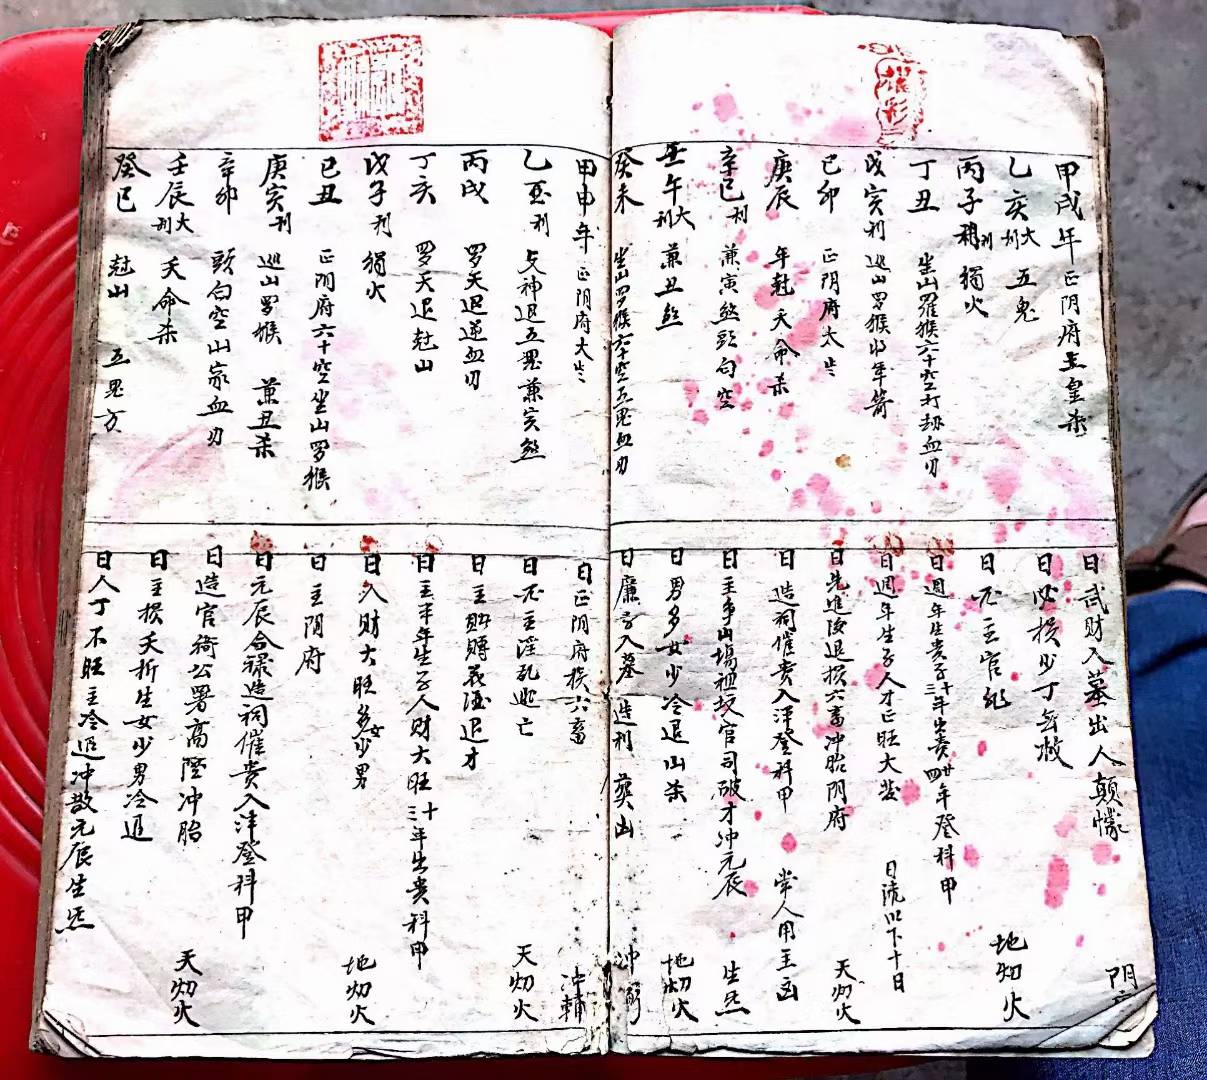 耀彩
甲戌年 正阴府 皇杀
乙亥 大利 五鬼
丙子 利 獨火
丁丑 坐山羅猴六十空打劫血刃
戊寅 利 巡山罗猴 年箭
己卯 正阴府太岁
庚辰 年尅天命杀
辛巳 利 兼寅煞頭白空
壬午 大利 兼丑煞
癸未 坐山罗猴六十空五鬼血刃
日武财入墓出人顛懞 阴
日必損少丁
日 主官非 地灱火
日週年生贵子三十年出贵四廿年登科甲
日週年生子人才正旺大发 日流以下十日
日先進後退損六畜冲胎阴府 天灱火
日造祠催贵入泮登科甲 常人用主凶
日主争山塲祖坟官司破才冲元辰 生炁
日男多女少冷退山杀 地灱火
日廉 入墓 造利 葬凶 冲
甲申年 正阴府太岁
乙酉 利 文神退五鬼兼亥煞
丙戌 罗天退逆血刃
丁亥 罗天退尅山
戊子 利 獨火
己丑 正阴府六十空坐山罗猴
庚寅 利 巡山罗猴 兼丑杀
辛卯 頭白空山家血刃
壬辰 大利 天命杀
癸巳 尅山 五鬼方
日正阴府損六畜 冲輔
日 主淫乱逃亡 天灱火
日主 賭 酒退才
日主半年生子人财大旺三十年出贵科甲
日入财大旺多女少男 地灱火
日主阴府
日元辰合禄造祠催贵入泮登科甲
日造官衙公署高陞冲胎 天灱火
日主損夭折生女少男冷退
日人丁不旺主冷退冲散元辰生炁